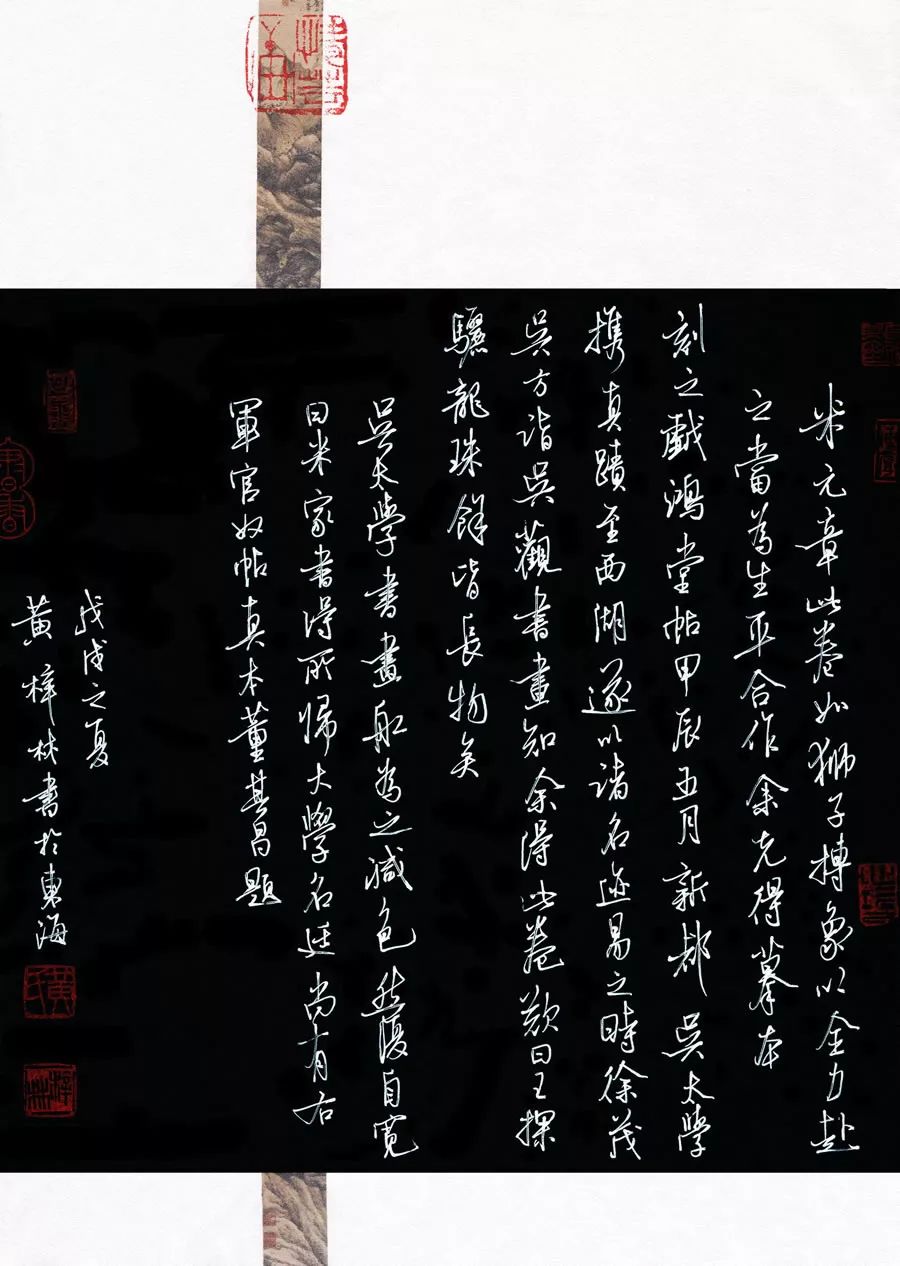 米元章此卷如狮子搏象以全力赴
之當為生平合作余先得摹本
刻之戲鴻堂帖甲辰五月新都吳太學
携真蹟至西湖遂以諸名迹易之時徐茂
吳方詣吳觀書畫知余得此卷歎曰已探
驪龍珠餘皆長物矣
吳太學書畫船為之減色然復自寬
曰米家書得所歸大學名廷尚有右
軍官奴帖真本董其昌題
戊戌之夏
黄梓林書於東海
黄
梓林